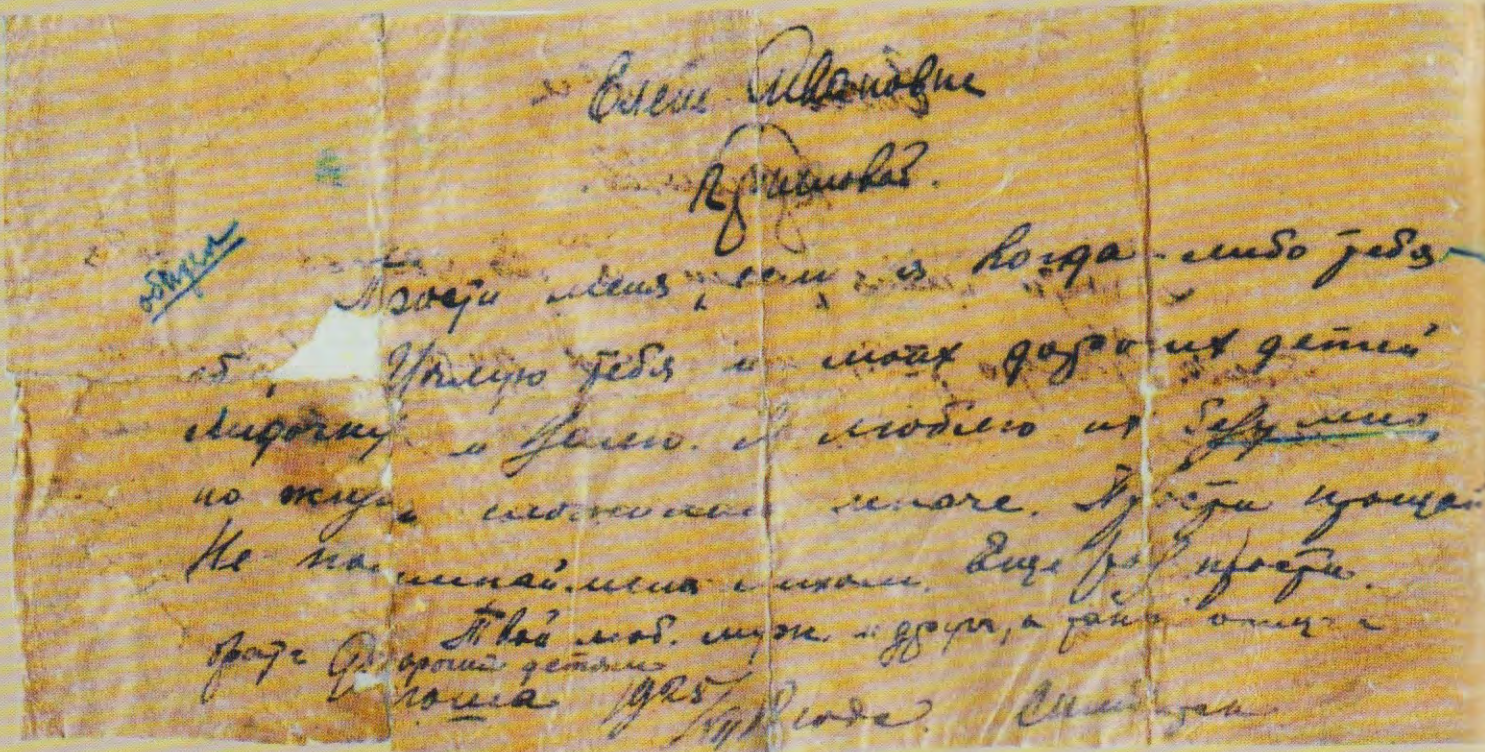 Елене Ивановне
обидел
Прости меня, если я когда-либо тебя
об Целую тебя и моих дорогих детей
Лидочку и Колю. Я люблю их безумно,
но жизнь сложилась иначе. Прости прощай
Не поминай меня лихом. Еще раз прости.
Твой люб. муж и друг, а также отец и
брат дорогим детям
1925 года.